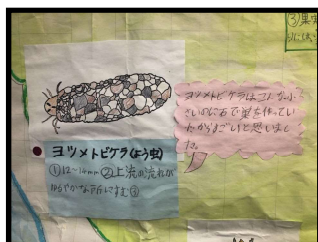 ③果実
ヨツメトビケラ(よう虫)
①12~14mm ②上流の流れが
ゆるやかな所にすむ ③
ヨツメトビケラはコノ
石で巣を作ってい
すごいと思いまし
た。